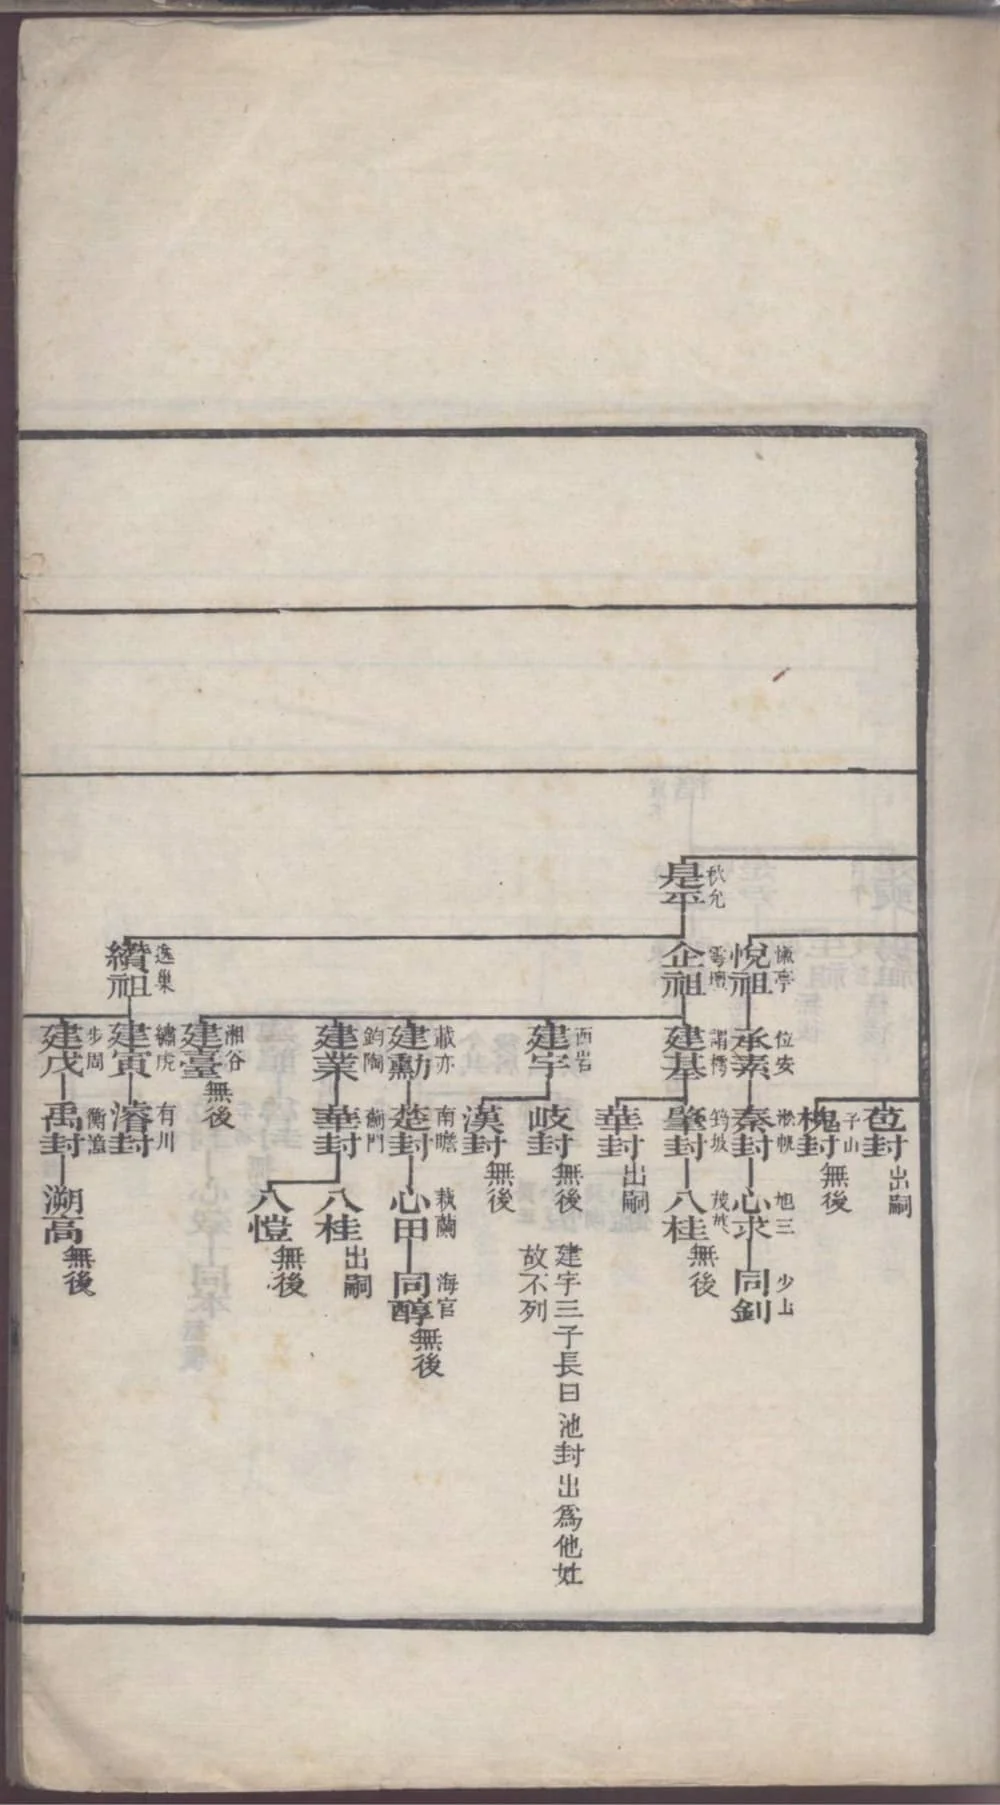 是平 秋允
悅祖 慊亭
企祖 雩壇
纘祖 逸巢
承素 位安
建基 謂樗
建宇 西岩
建勳 載亦
建業 鈞陶
建臺 湘谷 無後
建寅 繡虎
建戊 步周
苞封 出嗣
槐封 子山 無後
秦封 淞帆
肇封 筠坂
華封 出嗣
岐封 無後
漢封 無後
楚封 南瞻
華封 薊門
濬封 有川
禹封 衡瀛
心求 旭三
八桂 茂 無後
心田 執蘭
八桂 出嗣
八愷 無後
溯高 無後
同釗 少山
同醇 海官 無後
建宇三子長曰池封出爲他姓
故不列